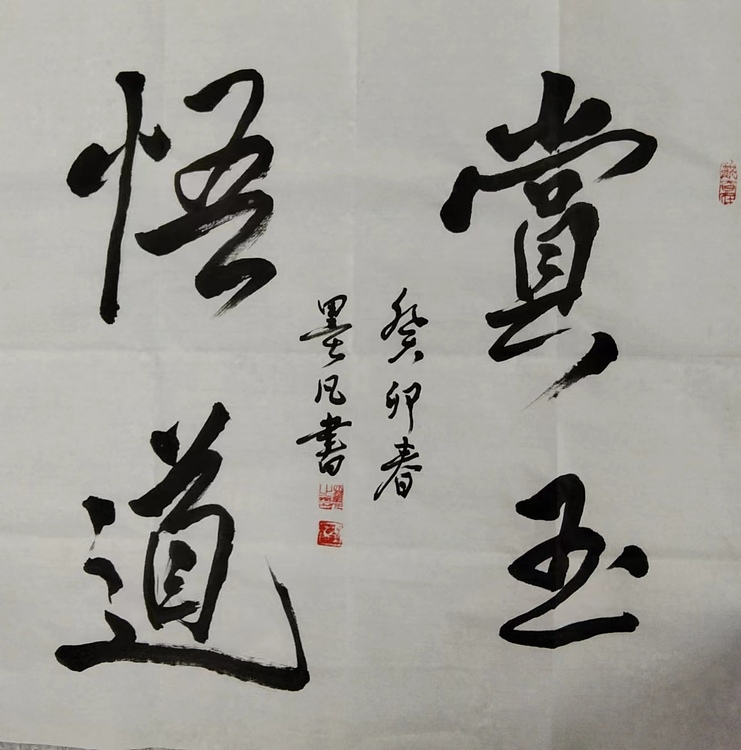 賞玉
癸卯春
墨凡書
悟道